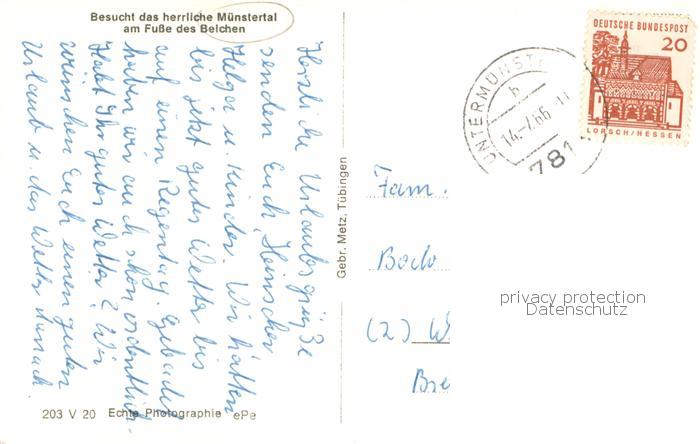 Besucht das herrliche Münstertal
am Fuße des Belchen
Herzliche Urlaubsgrüße
senden Euch, Heinscher
Helger u. Kinder. Wir hatten
bis jetzt gutes Wetter bis
auf einen Regentag. Gebadet
haben wir auch schon ordentlich.
Habt Ihr gutes Wetter? Wir
wünschen Euch einen guten
Urlaub u. das Wetter danach.
203 V 20 Echte Photographie ePe
Gebr. Metz, Tübingen
UNTERMÜNST
b
14.-7.66.-11
781
DEUTSCHE BUNDESPOST
20
LORSCH/HESSEN
Fam.
(2)
privacy protection
Datenschutz